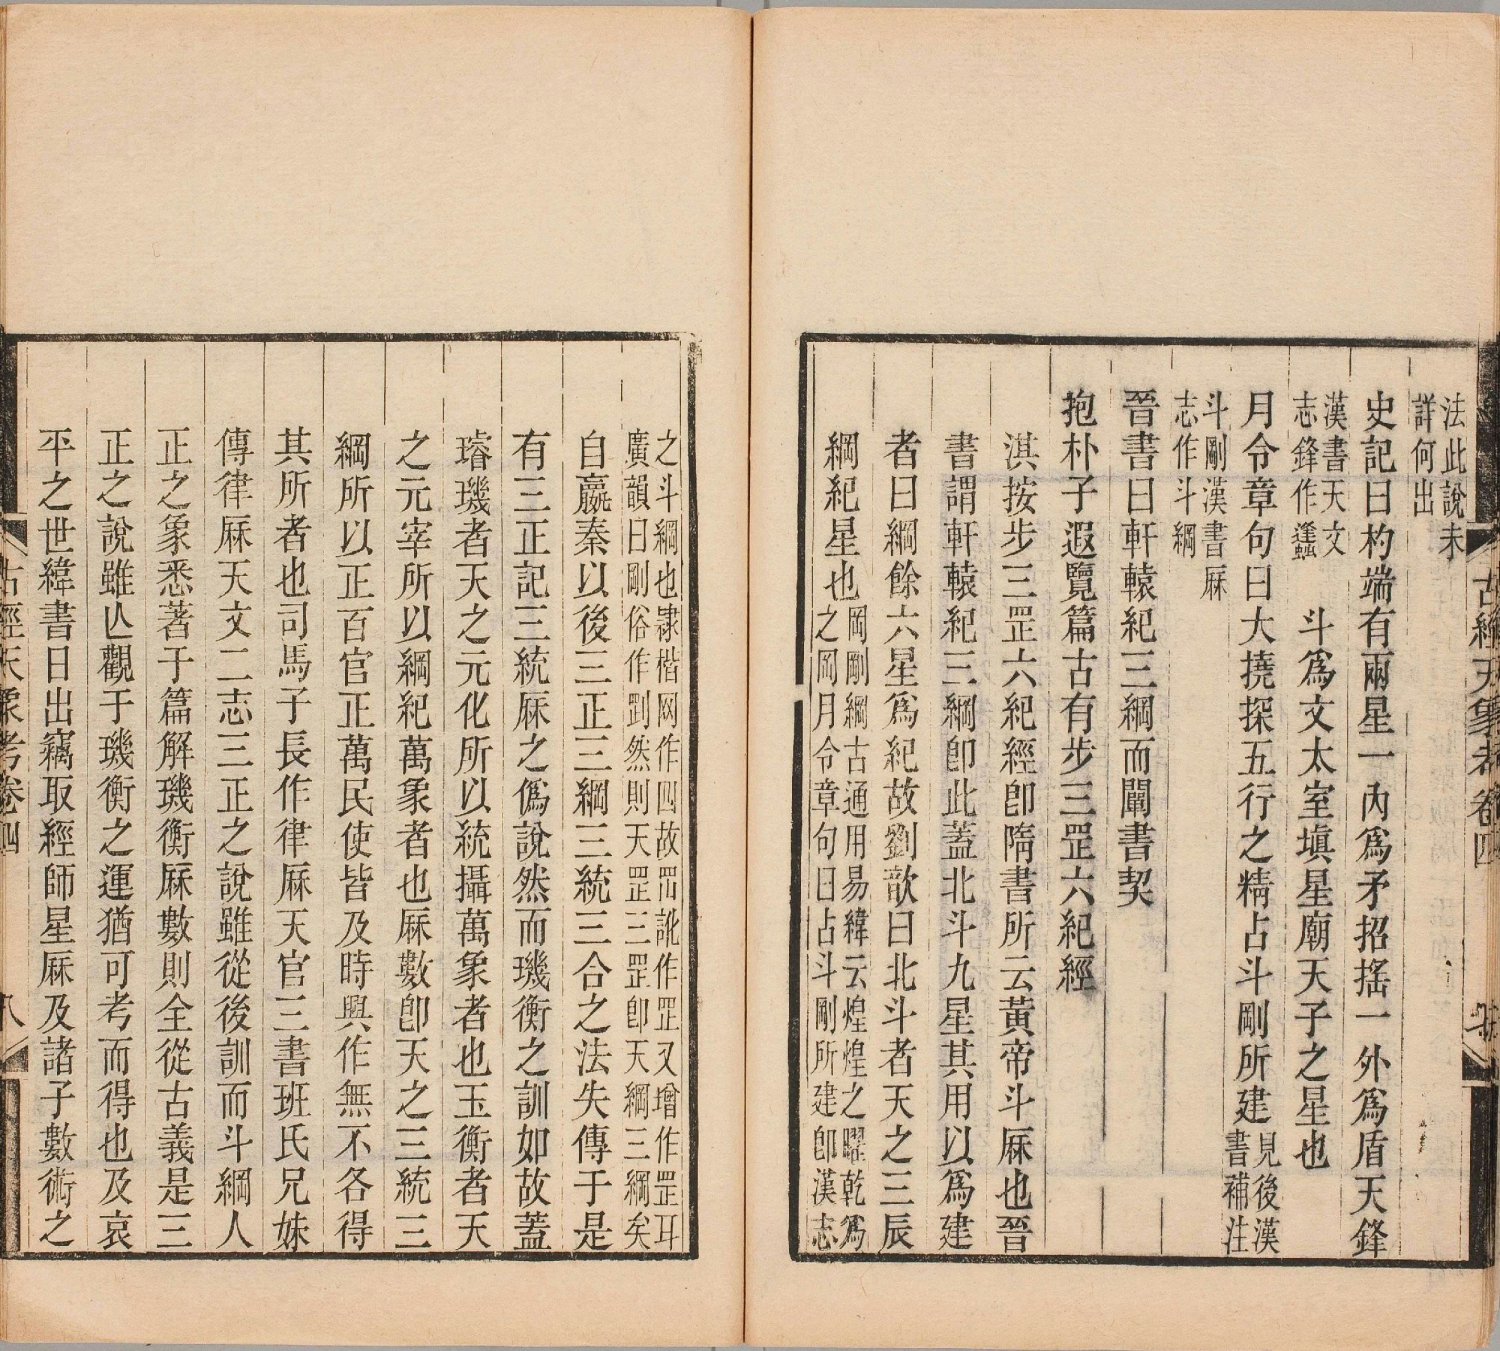 法此說未
詳何出
史記曰杓端有兩星一內爲矛招搖一外爲盾天鋒
漢書天文
志鋒作蠭
斗爲文太室塡星廟天子之星也
月令章句曰大撓探五行之精占斗剛所建見後漢
書補注
斗剛漢書厤
志作斗綱
晉書曰軒轅紀三綱而闡書契
抱朴子遐覽篇古有步三罡六紀經
淇按步三罡六紀經卽隋書所云黃帝斗厤也晉
書謂軒轅紀三綱卽此蓋北斗九星其用以爲建
者曰綱餘六星爲紀故劉歆曰北斗者天之三辰
綱紀星也岡剛綱古通用易緯云煌煌之曜乾爲
之岡月令章句曰占斗剛所建卽漢志
古經天象考卷四
之斗綱也隷楷网作四故𦊅訛作罡又增作罡耳
廣韻曰剛俗作罰然則天罡三罡卽天綱三綱矣
自嬴秦以後三正三綱三統三合之法失傳于是
有三正記三統厤之僞說然而璣衡之訓如故蓋
璿璣者天之元化所以統攝萬象者也玉衡者天
之元宰所以綱紀萬象者也厤數卽天之三統三
綱所以正百官正萬民使皆及時興作無不各得
其所者也司馬子長作律厤天官三書班氏兄妹
傳律厤天文二志三正之說雖從後訓而斗綱人
正之象悉著于篇解璣衡厤數則全從古義是三
正之說雖亾觀于璣衡之運猶可考而得也及哀
平之世緯書日出竊取經師星厤及諸子數術之
古經天象考卷四
八